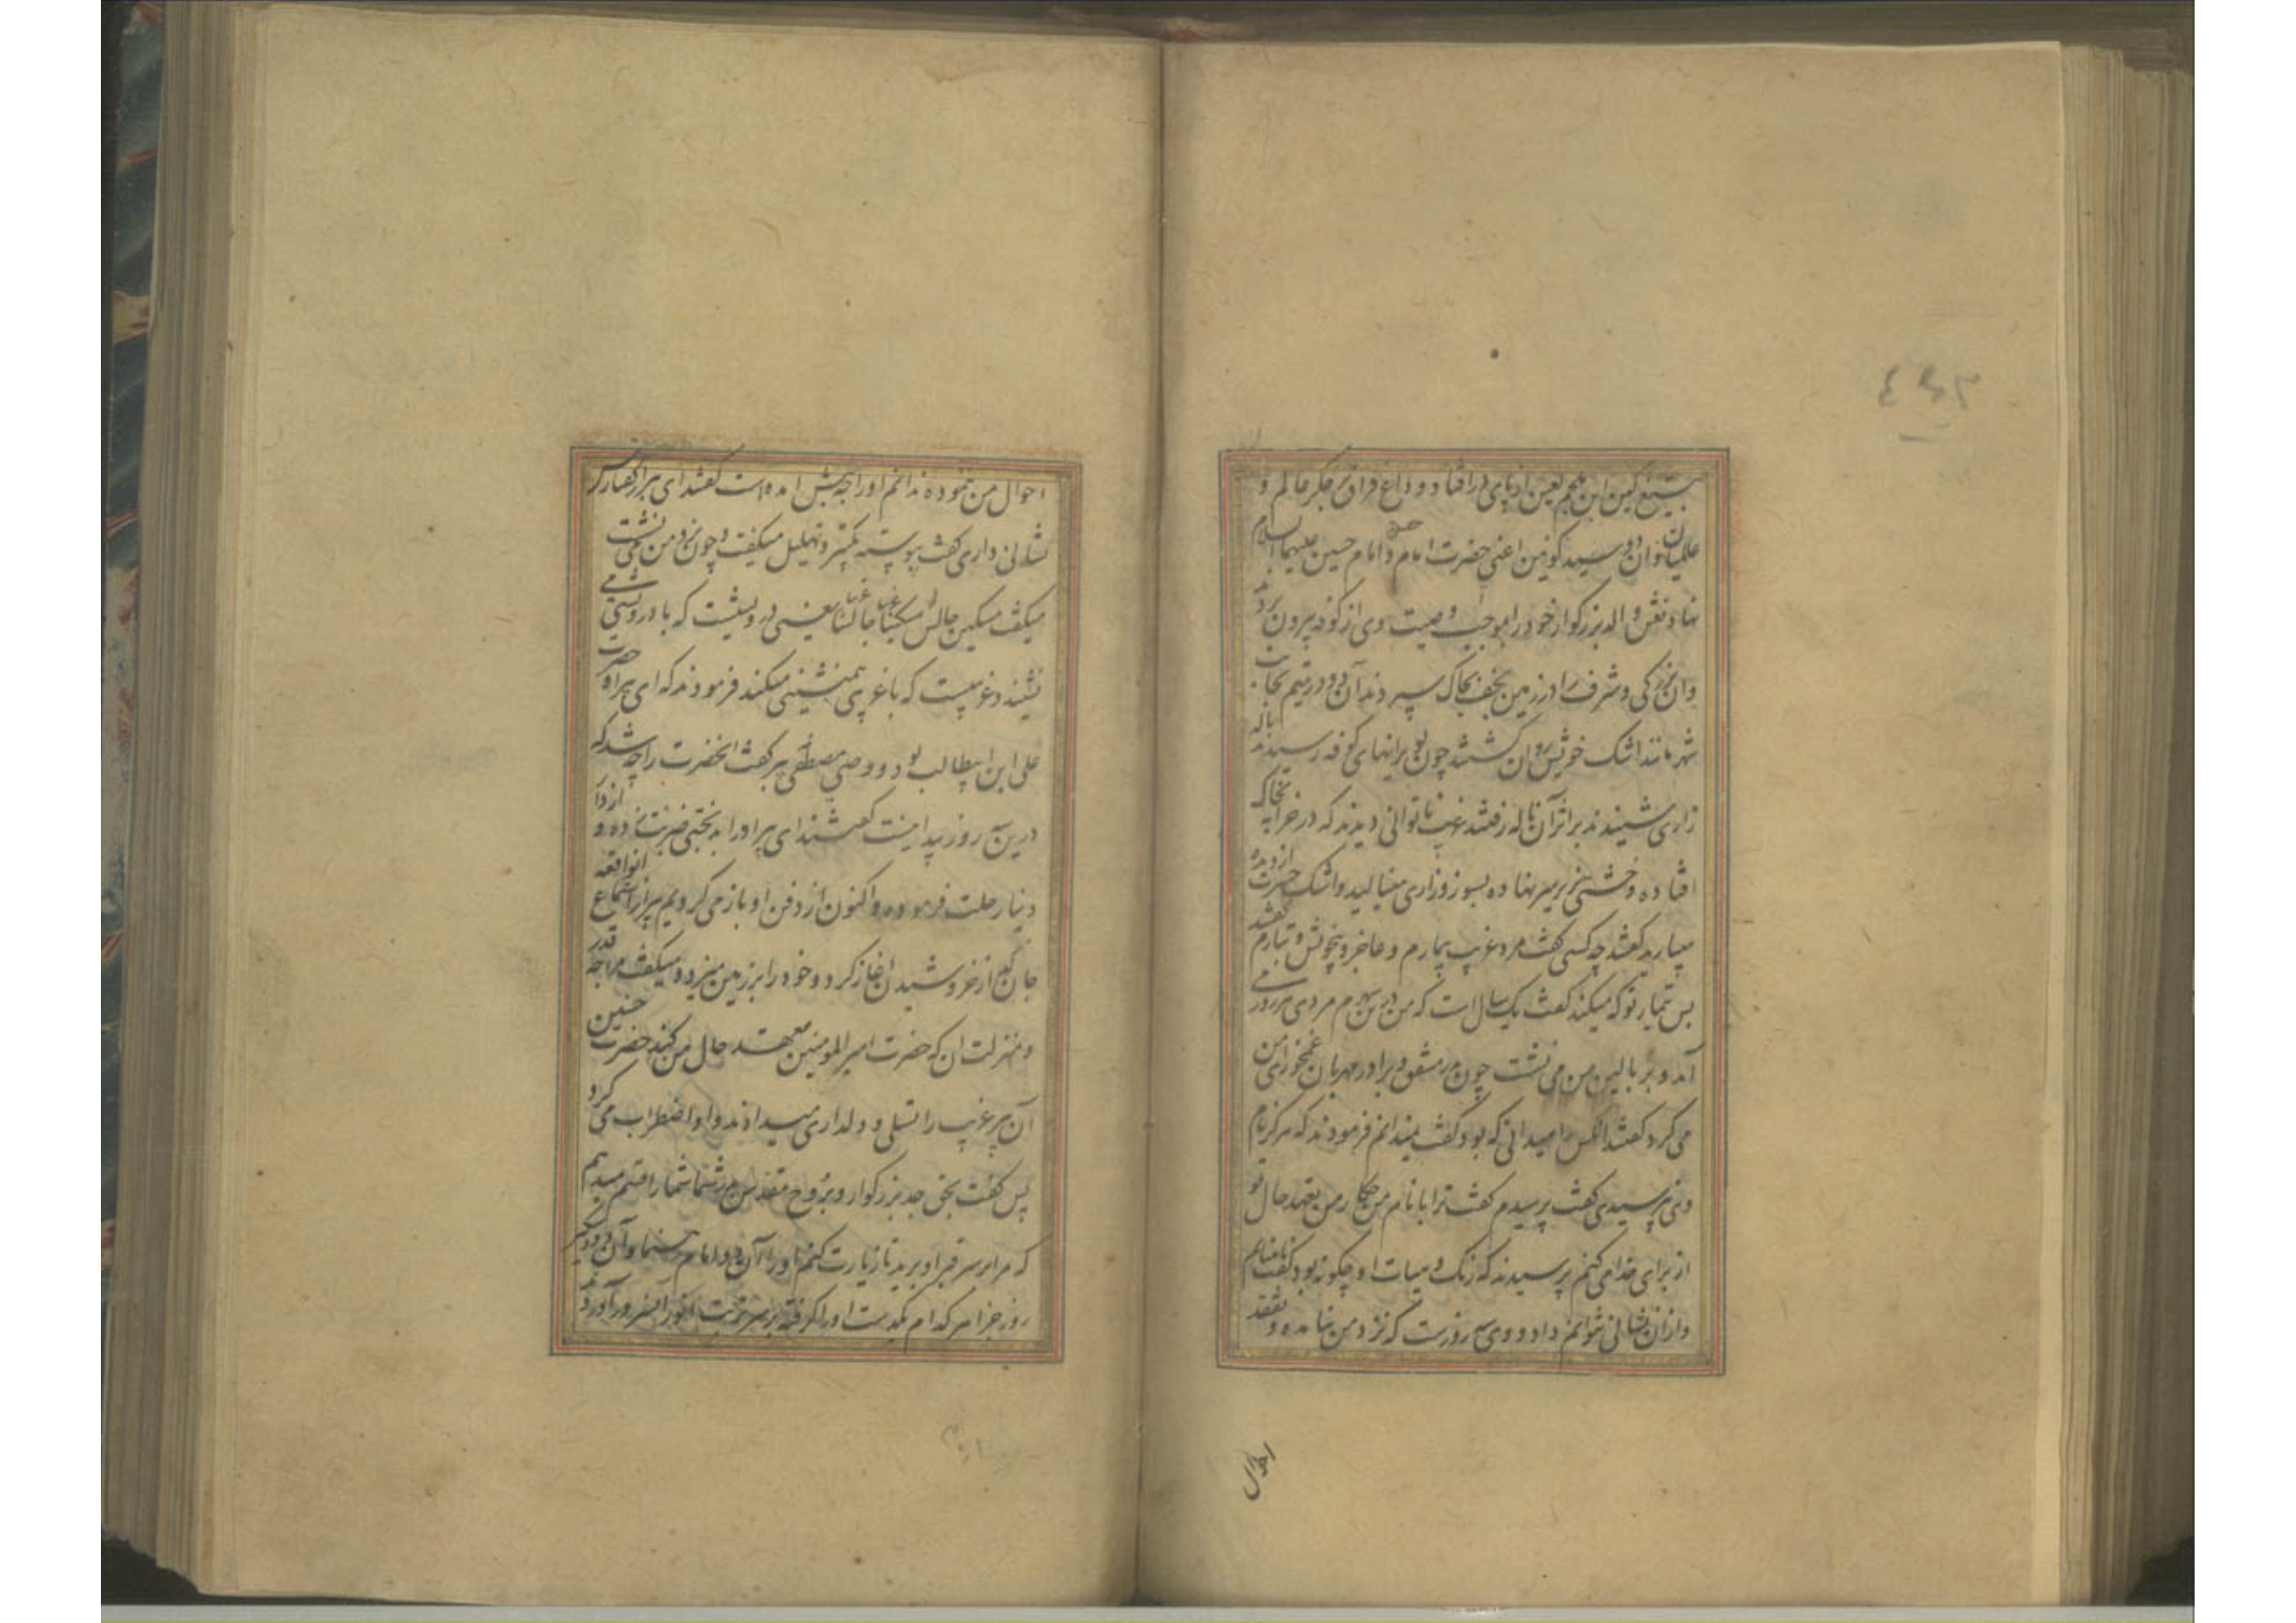 بتیغ کین ابن ملجم لعین از پای در افتاد و داغ فراق بر جگر عالم و
علمیان و آن دو سید کونین اعنی حضرت امام حسن و امام حسین علیهما السلام
نهاد نعش والد بزرکوار خود را بموجب وصیت وی از کوفه بیرون بردند
و ان بزرکی و شرف را در زمین نجف بخاک سپردند آن دو در یتیم بجانب
شهر مانند اشک خویش روان کشتند چون بویرانهای کوفه رسیدند ناله
زاری شنیدند بر اثر آن ناله رفتند غریب ناتوانی دیدند که در خرابه بخاک
افتاده و خشتی بزیر سر نهاده بسوز و زاری مینالید و اشک حسرت از دیده
میبارید کفتند چه کسی کفت مرد غریب بیمارم و عاجز و بیخویش و تبارم کفتند
پس تیمار تو که میکند کفت یک سال است که من درین شهرم مردی هر روز می
آمد و بر بالین من می نشست چون پدر مشفق و برادر مهربان غمخواری من
می کرد کفتند انکس را میدانی که بود کفت نمیدانم فرمودند که هرکز نام
وی نپرسیدی کفت پرسیدم کفت ترا با نام من چکار من تعهد حال تو
از برای خدا می کنم پرسیدند که رنک و هیات او چکونه بود کفت نابینایم
و از ان نشانی نتوانم داد و وی سه روزست که نزد من نیامده و تفقد
احوال
احوال من ننموده ندانم او را چه پیش امده است کفتند ای پیر از کفتارش
نشانی داری کفت پیوسته تکبیر و تهلیل میکفت و چون نزد من می نشست
میکفت مسکین جالس مسکینا غریب جالس غریبا یعنی درویشیست که با درویشی می
نشیند و غریبیست که با غریبی همنشینی میکند فرمودند که ای پیر او حضرت
علی ابن ابیطالب بود و وصی مصطفی پیر کفت انحضرت را چه شد که
درین سه روز پیدا نیست کفتند ای پیر او را بدبختی ضربت زده و از دار
دنیا رحلت فرموده و اکنون از دفن او باز می کردیم پیر از استماع انواقعه
جان کاه از خروشیدن اغاز کرد و خود را بر زمین میزد و میکفت مرا چه قدر
و منزلت ان که حضرت امیر المومنین تعهد حال من کند حضرت حسنین
آن پیر غریب را تسلی و دلداری میدادند و او اضطراب می کرد
پس کفت بحق جد بزرکوار و بروح مقدس پدر شما شما را قسم میدهم
که مرا بر سر قبر او برید تا زیارت کنم او را آن دو امام رهنما و آن دو دستکیر
روز جزا هر کدام یکدست او را کرفته بر سر تربت انور آنسرور آوردند